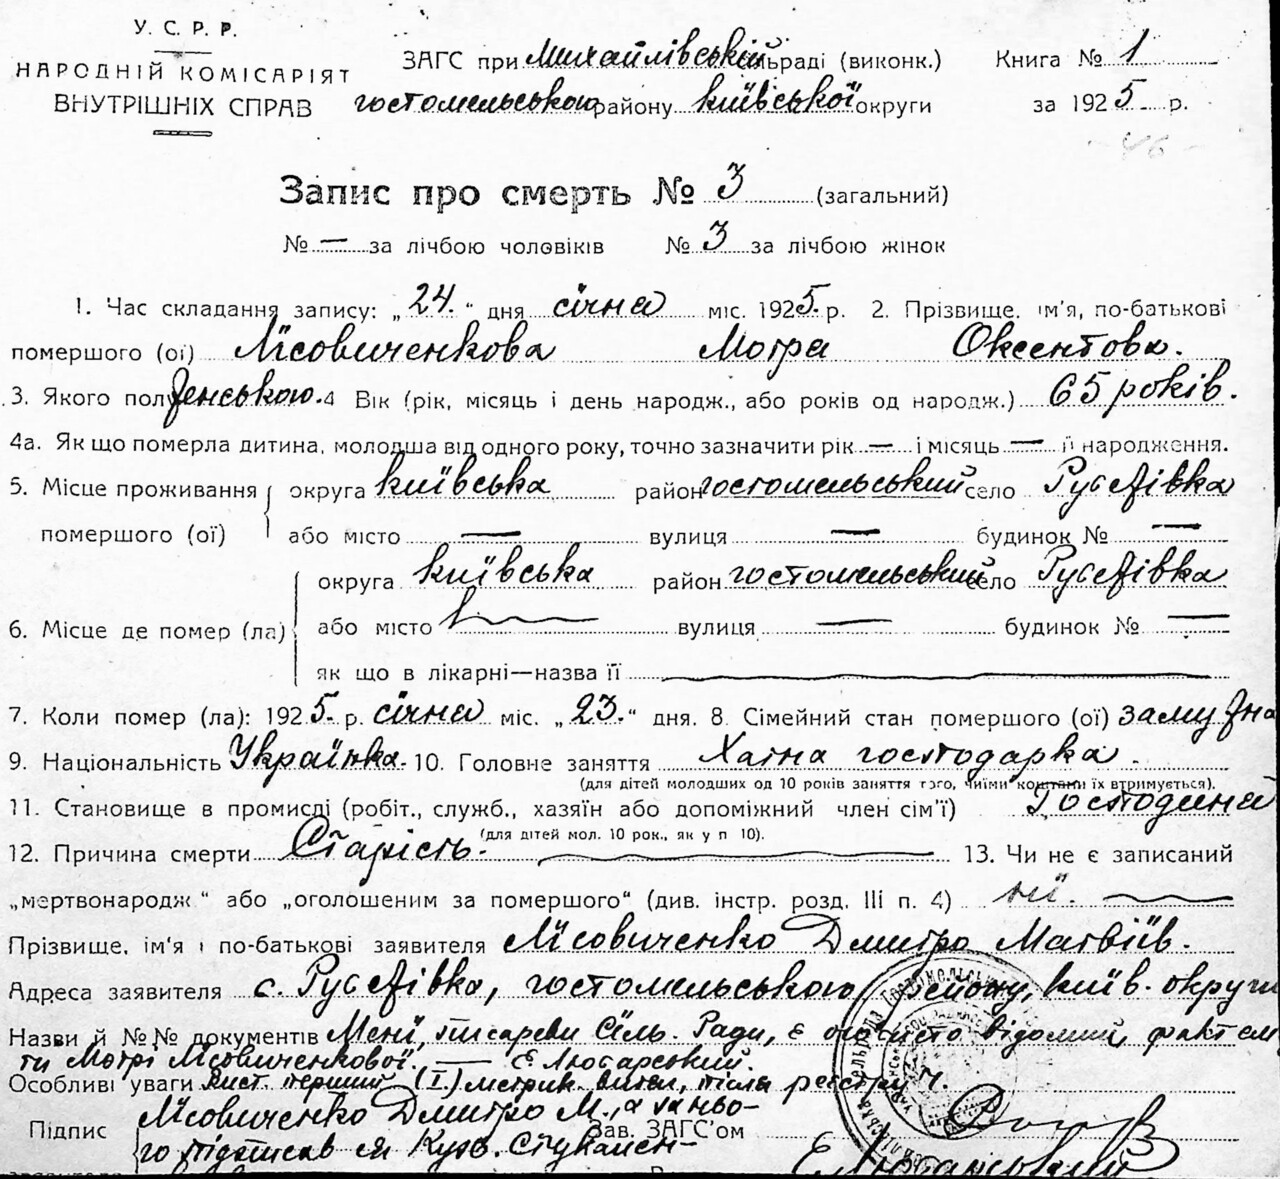 У. С. Р. Р.
НАРОДНІЙ КОМІСАРІЯТ
ВНУТРІШНІХ СПРАВ
ЗАГС при Михайлівській сільраді (виконк.)
гостомельського району київської округи
Книга № 1
за 1925 р.
46
Запис про смерть № 3 (загальний)
№ — за лічбою чоловіків № 3 за лічбою жінок
1. Час складання запису: „24.“ дня січня міс. 1925. р. 2. Прізвище, ім'я, по-батькові
помершого (ої) Лісовиченкова Мотря Оксентова.
3. Якого полу женською. 4 Вік (рік, місяць і день народж., або років од народж.) 65 років.
4а. Як що померла дитина, молодша від одного року, точно зазначити рік — і місяць — її народження.
5. Місце проживання помершого (ої) округа київська район гостомельський село Русанівка
або місто — вулиця — будинок № —
6. Місце де помер (ла) округа київська район гостомельський село Русанівка
або місто вулиця — будинок № —
як що в лікарні—назва її
7. Коли помер (ла): 1925. р. січня міс. „23.“ дня. 8 Сімейний стан помершого (ої) замужна
9. Національність Українка. 10. Головне заняття Хатна господарка.
(для дітей молодших од 10 років заняття того, чиїми коштами їх втримується).
11. Становище в промислі (робіт., служб., хазяїн або допоміжний член сім'ї) Господиня
(для дітей мол. 10 рок., як у п 10).
12. Причина смерти Старість. 13. Чи не є записаний
„мертвонародж“ або „оголошеним за помершого“ (див. інстр. розд. III п. 4) ні.
Прізвище, ім'я і по-батькові заявителя Лісовиченко Дмитро Матвіїв.
Адреса заявителя с. Русанівка, гостомельського району, київ. округи
Назви й №№ документів Мені, писареви Сіль. Ради, є особисто відомий факт смер
ти Мотрі Лісовиченкової. — Є. Лютарський.
Особливі уваги Лист. перший (I.) метрик.
Підпис Лісовиченко Дмитро М., а за ньо-
го підписав ся Кузь.
Зав. ЗАГС'ом